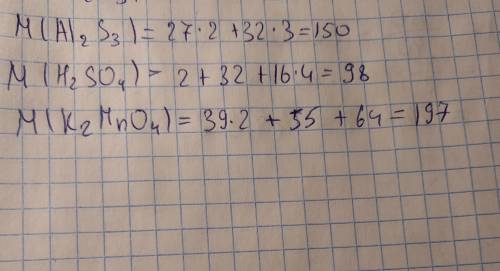 M(Al₂S₃) = 27·2 + 32·3 = 150
M(H₂SO₄) = 2 + 32 + 16·4 = 98
M(K₂MnO₄) = 39·2 + 55 + 64 = 197